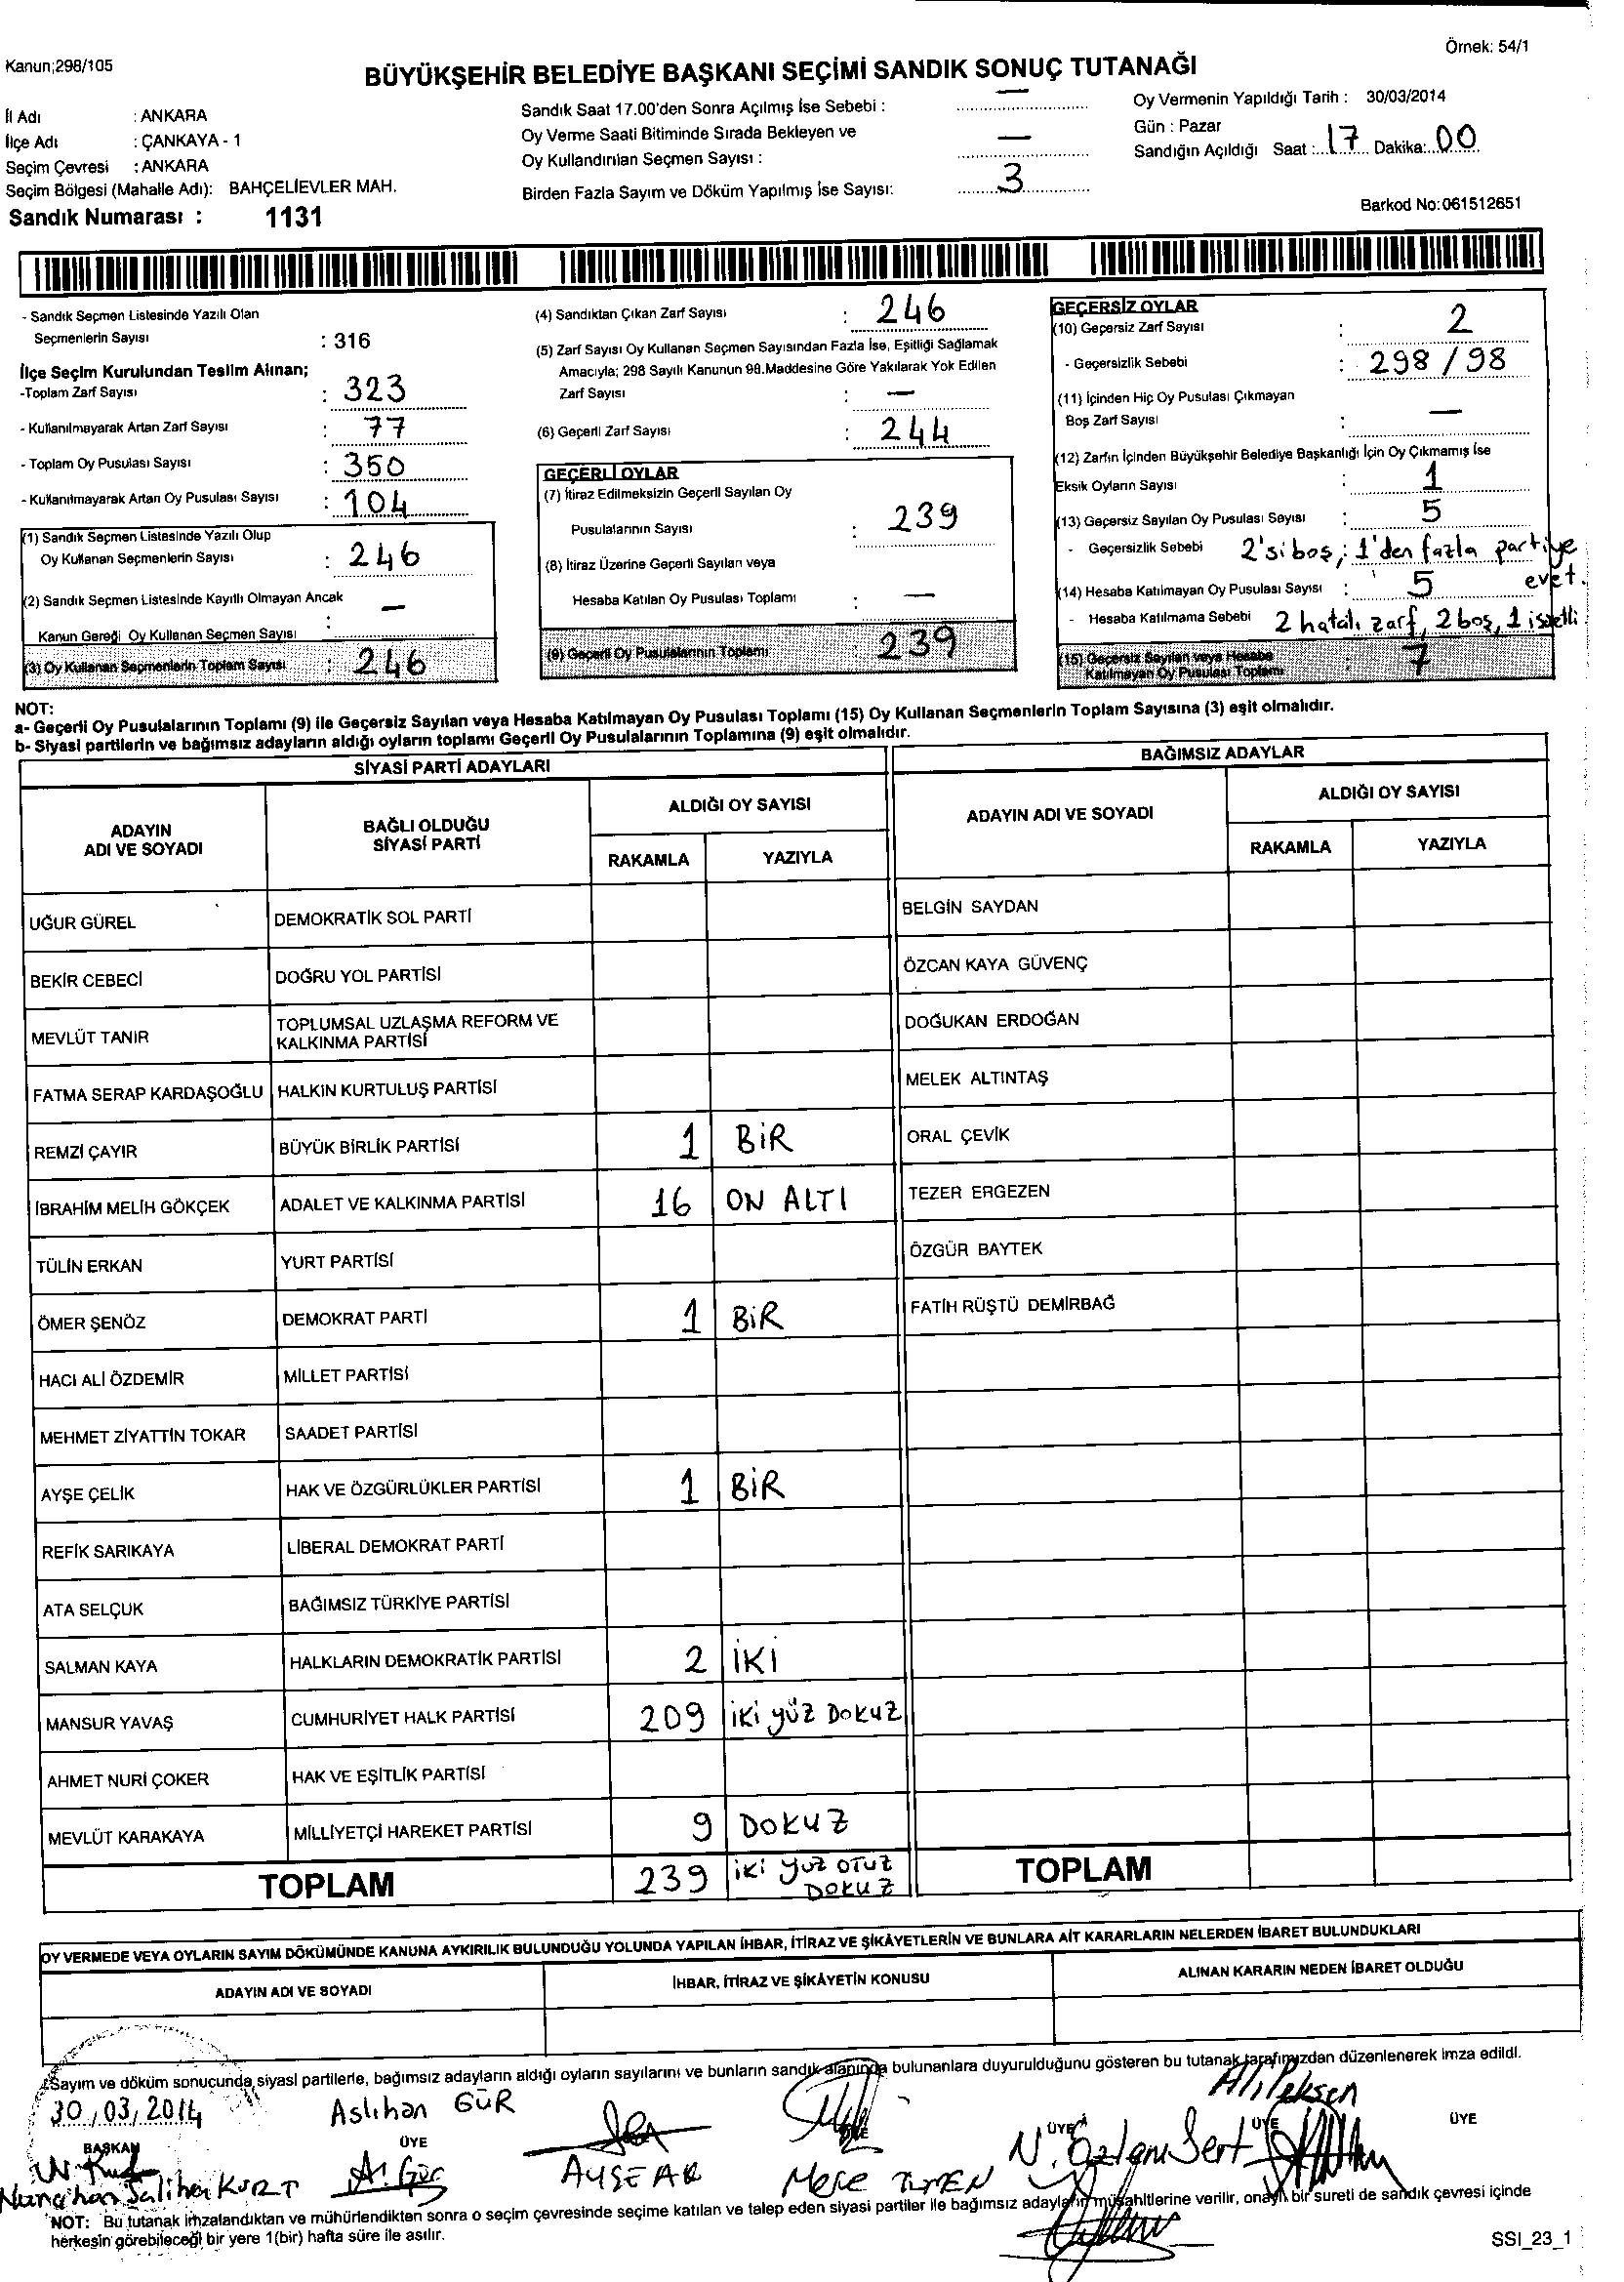 Kanun;298/105
Örnek: 54/1
BÜYÜKŞEHİR BELEDİYE BAŞKANI SEÇİMİ SANDIK SONUÇ TUTANAĞI
İl Adı : ANKARA
İlçe Adı : ÇANKAYA - 1
Seçim Çevresi : ANKARA
Seçim Bölgesi (Mahalle Adı): BAHÇELİEVLER MAH.
Sandık Numarası : 1131
Sandık Saat 17.00'den Sonra Açılmış İse Sebebi : —
Oy Verme Saati Bitiminde Sırada Bekleyen ve
Oy Kullandırılan Seçmen Sayısı : —
Birden Fazla Sayım ve Döküm Yapılmış İse Sayısı: 3
Oy Vermenin Yapıldığı Tarih : 30/03/2014
Gün : Pazar
Sandığın Açıldığı Saat : 17 Dakika: 00
Barkod No:061512651
- Sandık Seçmen Listesinde Yazılı Olan
Seçmenlerin Sayısı : 316
İlçe Seçim Kurulundan Teslim Alınan;
-Toplam Zarf Sayısı : 323
- Kullanılmayarak Artan Zarf Sayısı : 77
- Toplam Oy Pusulası Sayısı : 350
- Kullanılmayarak Artan Oy Pusulası Sayısı : 104
(1) Sandık Seçmen Listesinde Yazılı Olup
Oy Kullanan Seçmenlerin Sayısı : 246
(2) Sandık Seçmen Listesinde Kayıtlı Olmayan Ancak
Kanun Gereği Oy Kullanan Seçmen Sayısı : —
(3) Oy Kullanan Seçmenlerin Toplam Sayısı : 246
(4) Sandıktan Çıkan Zarf Sayısı : 246
(5) Zarf Sayısı Oy Kullanan Seçmen Sayısından Fazla İse, Eşitliği Sağlamak
Amacıyla; 298 Sayılı Kanunun 98.Maddesine Göre Yakılarak Yok Edilen
Zarf Sayısı : —
(6) Geçerli Zarf Sayısı : 244
GEÇERLİ OYLAR
(7) İtiraz Edilmeksizin Geçerli Sayılan Oy
Pusulalarının Sayısı : 239
(8) İtiraz Üzerine Geçerli Sayılan veya
Hesaba Katılan Oy Pusulası Toplamı : —
(9) Geçerli Oy Pusulalarının Toplamı : 239
GEÇERSİZ OYLAR
(10) Geçersiz Zarf Sayısı : 2
- Geçersizlik Sebebi : 298 / 98
(11) İçinden Hiç Oy Pusulası Çıkmayan
Boş Zarf Sayısı : —
(12) Zarfın İçinden Büyükşehir Belediye Başkanlığı İçin Oy Çıkmamış İse
Eksik Oyların Sayısı : 1
(13) Geçersiz Sayılan Oy Pusulası Sayısı : 5
- Geçersizlik Sebebi 2'si boş, 1'den fazla partiye
evet.
(14) Hesaba Katılmayan Oy Pusulası Sayısı : 5
- Hesaba Katılmama Sebebi 2 hatalı zarf, 2 boş, 1
(15) Geçersiz Sayılan veya Hesaba
Katılmayan Oy Pusulası Toplamı : 7
NOT:
a- Geçerli Oy Pusulalarının Toplamı (9) ile Geçersiz Sayılan veya Hesaba Katılmayan Oy Pusulası Toplamı (15) Oy Kullanan Seçmenlerin Toplam Sayısına (3) eşit olmalıdır.
b- Siyasi partilerin ve bağımsız adayların aldığı oyların toplamı Geçerli Oy Pusulalarının Toplamına (9) eşit olmalıdır.
SİYASİ PARTİ ADAYLARI
ADAYIN
ADI VE SOYADI
BAĞLI OLDUĞU
SİYASİ PARTİ
ALDIĞI OY SAYISI
RAKAMLA YAZIYLA
UĞUR GÜREL DEMOKRATİK SOL PARTİ
BEKİR CEBECİ DOĞRU YOL PARTİSİ
MEVLÜT TANIR TOPLUMSAL UZLAŞMA REFORM VE
KALKINMA PARTİSİ
FATMA SERAP KARDAŞOĞLU HALKIN KURTULUŞ PARTİSİ
REMZİ ÇAYIR BÜYÜK BİRLİK PARTİSİ 1 BİR
İBRAHİM MELİH GÖKÇEK ADALET VE KALKINMA PARTİSİ 16 ON ALTI
TÜLİN ERKAN YURT PARTİSİ
ÖMER ŞENÖZ DEMOKRAT PARTİ 1 BİR
HACI ALİ ÖZDEMİR MİLLET PARTİSİ
MEHMET ZİYATTİN TOKAR SAADET PARTİSİ
AYŞE ÇELİK HAK VE ÖZGÜRLÜKLER PARTİSİ 1 BİR
REFİK SARIKAYA LİBERAL DEMOKRAT PARTİ
ATA SELÇUK BAĞIMSIZ TÜRKİYE PARTİSİ
SALMAN KAYA HALKLARIN DEMOKRATİK PARTİSİ 2 İKİ
MANSUR YAVAŞ CUMHURİYET HALK PARTİSİ 209 İKİ YÜZ DOKUZ
AHMET NURİ ÇOKER HAK VE EŞİTLİK PARTİSİ
MEVLÜT KARAKAYA MİLLİYETÇİ HAREKET PARTİSİ 9 DOKUZ
TOPLAM 239 İKİ YÜZ OTUZ
DOKUZ
BAĞIMSIZ ADAYLAR
ADAYIN ADI VE SOYADI
ALDIĞI OY SAYISI
RAKAMLA YAZIYLA
BELGİN SAYDAN
ÖZCAN KAYA GÜVENÇ
DOĞUKAN ERDOĞAN
MELEK ALTINTAŞ
ORAL ÇEVİK
TEZER ERGEZEN
ÖZGÜR BAYTEK
FATİH RÜŞTÜ DEMİRBAĞ
TOPLAM
OY VERMEDE VEYA OYLARIN SAYIM DÖKÜMÜNDE KANUNA AYKIRILIK BULUNDUĞU YOLUNDA YAPILAN İHBAR, İTİRAZ VE ŞİKÂYETLERİN VE BUNLARA AİT KARARLARIN NELERDEN İBARET BULUNDUKLARI
ADAYIN ADI VE SOYADI
İHBAR, İTİRAZ VE ŞİKÂYETİN KONUSU
ALINAN KARARIN NEDEN İBARET OLDUĞU
Sayım ve döküm sonucunda siyasi partilerle, bağımsız adayların aldığı oyların sayılarını ve bunların sandık alanında bulunanlara duyurulduğunu gösteren bu tutanak tarafımızdan düzenlenerek imza edildi.
30/03/2014 Aslıhan GÜR Ali Peksen
BAŞKAN ÜYE ÜYE ÜYE ÜYE
Saliha KURT A. Gür AYŞE AK Mere N. Özlem Sert
NOT: Bu tutanak imzalandıktan ve mühürlendikten sonra o seçim çevresinde seçime katılan ve talep eden siyasi partiler ile bağımsız adayların müşahitlerine verilir, onaylı bir sureti de sandık çevresi içinde
herkesin görebileceği bir yere 1(bir) hafta süre ile asılır.
SSI_23_1